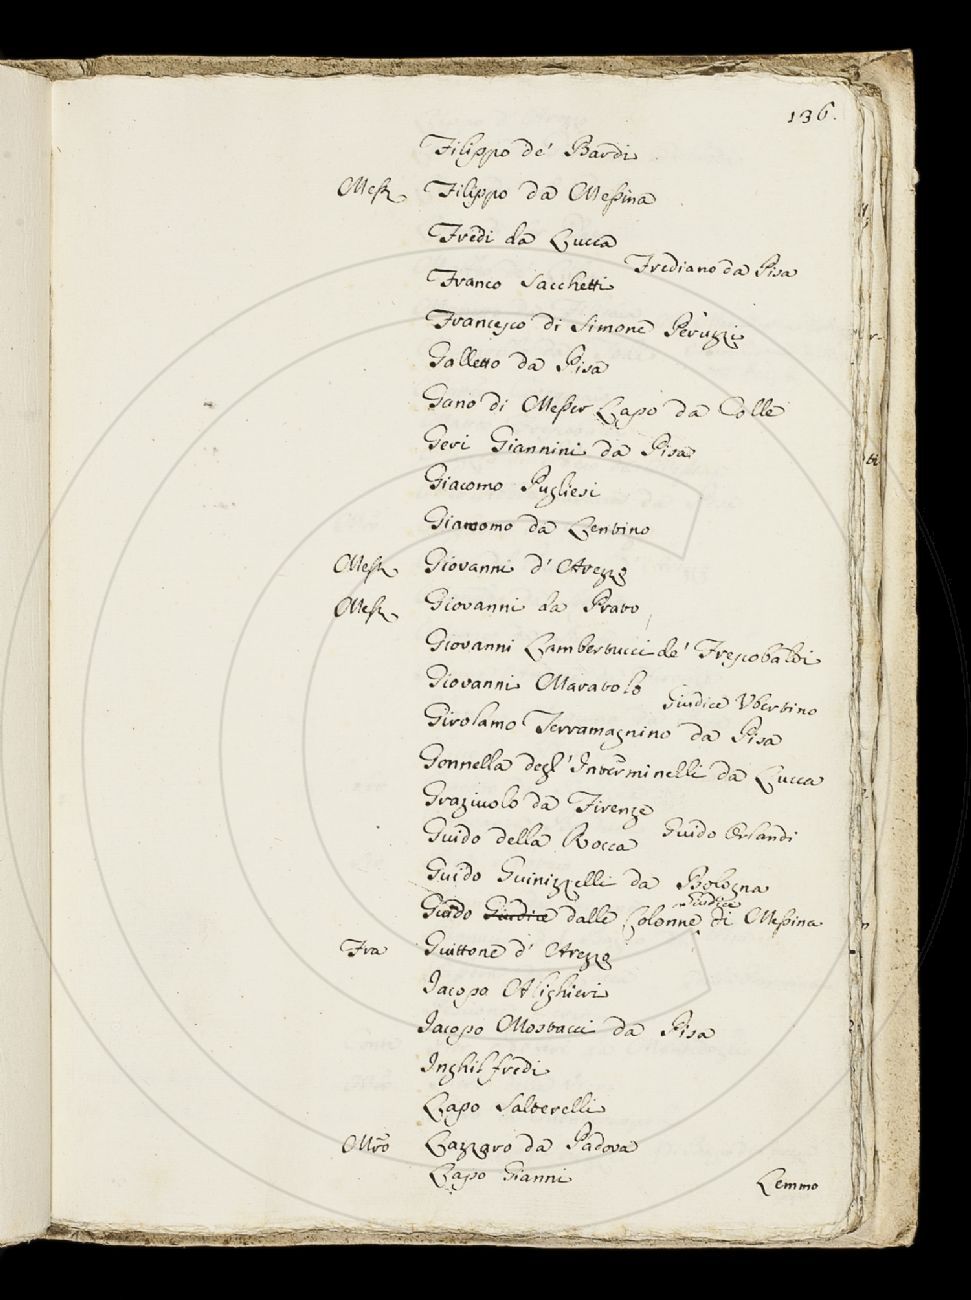 136.
Filippo de' Bardi
Messr. Filippo da Messina
Fredi da Lucca
Frediano da Pisa
Franco Sacchetti
Francesco di Simone Peruzzi
Galletto da Pisa
Gano di Messer Lapo da Colle
Geri Giannini da Pisa
Giacomo Pugliesi
Giacomo da Lentino
Messr. Giovanni d' Arezzo
Messr. Giovanni da Prato
Giovanni Lambertucci de' Frescobaldi
Giovanni Maratolo
Giudice Ubertino
Girolamo Terramagnino da Pisa
Gonnella degl' Interminelli da Lucca
Graziuolo da Firenze
Guido Orlandi
Guido della Rocca
Guido Guinizzelli da Bologna
Giudice
Guido Giudice dalle Colonne di Messina
Fra Guittone d' Arezzo
Jacopo Alighieri
Jacopo Mostacci da Pisa
Inghilfredi
Lapo Salterelli
Mro Lazzaro da Padova
Lapo Gianni
Lemmo